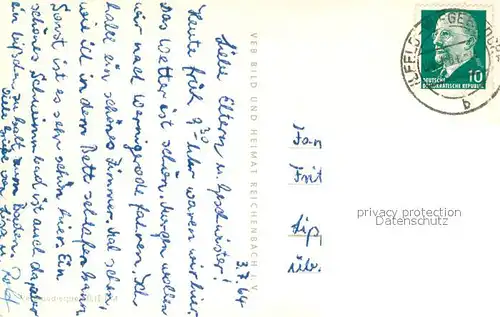 3.7.64
Liebe Eltern u. Geschwister!
Heute früh 9³⁰ Uhr waren wir hier.
Das Wetter ist schön. Morgen wollen
wir nach Wernigerode fahren. Ich
habe ein schönes Zimmer. Mal sehen,
wie ich in dem Bett schlafen kann
Sonst ist es sehr schön hier. Ein
schönes Schwimmbad ist auch da, aber
ein bißchen zu kalt zum Baden.
Viele Grüße von
VEB BILD UND HEIMAT REICHENBACH I. V.
Fam
Frit
üb.
privacy protection
Datenschutz
DEUTSCHE
DEMOKRATISCHE REPUBLIK
10
ILFELD
b